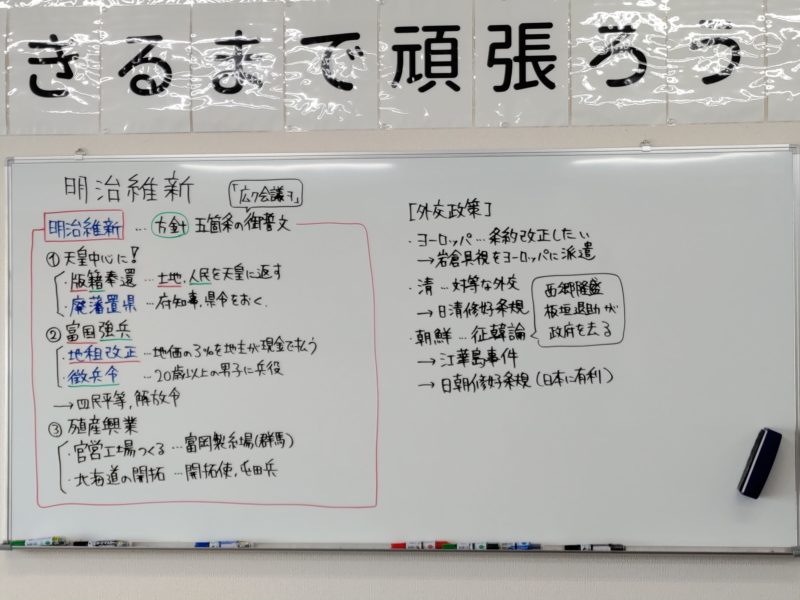 きるまで頑張ろう
明治維新
「広ク会議ヲ」
明治維新 … 方針 五箇条の御誓文
① 天皇中心に!
・版籍奉還 … 土地,人民を天皇に返す
・廃藩置県 … 府知事,県令をおく
② 富国強兵
・地租改正 … 地価の3%を地主が現金で払う
・徴兵令 … 20歳以上の男子に兵役
→四民平等,解放令
③ 殖産興業
・官営工場つくる … 富岡製糸場(群馬)
・北海道の開拓 … 開拓使,屯田兵
[外交政策]
・ヨーロッパ … 条約改正したい
→岩倉具視をヨーロッパに派遣
・清 … 対等な外交
→日清修好条規
・朝鮮 … 征韓論
西郷隆盛
板垣退助が
政府を去る
→江華島事件
→日朝修好条規(日本に有利)